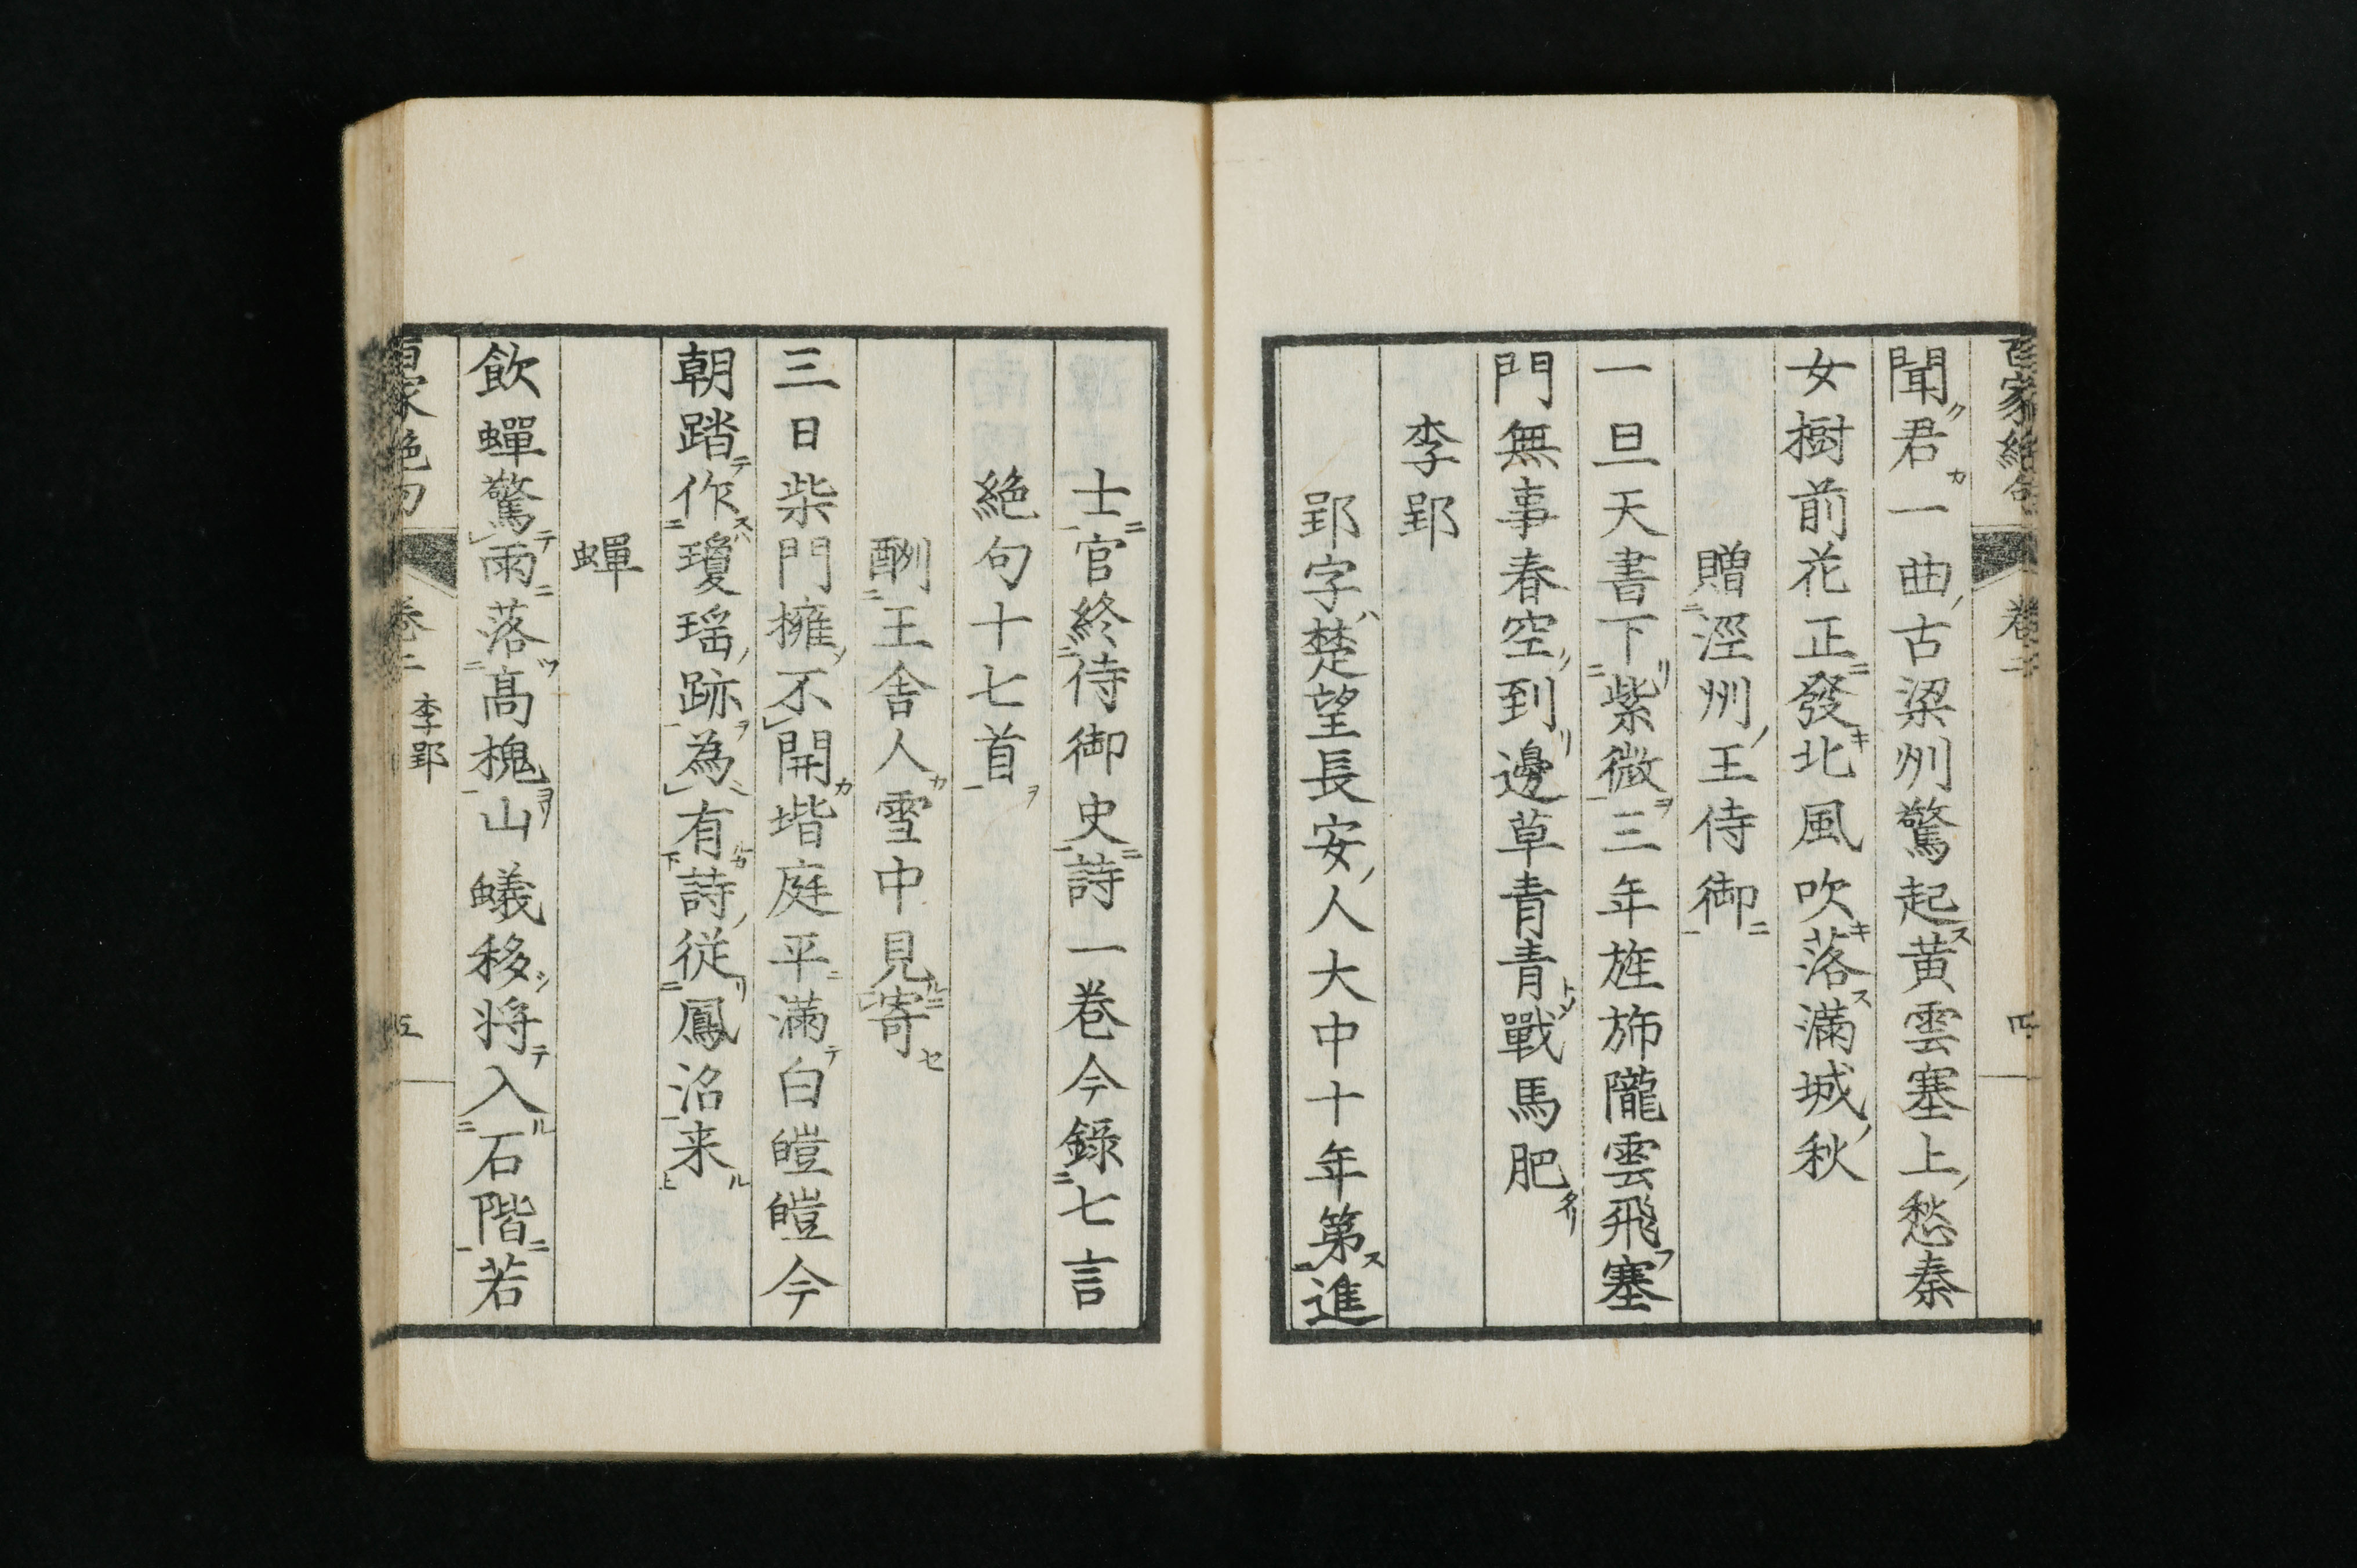 百家絶句 卷二 四
聞君一曲古梁州驚起黄雲塞上愁秦
女樹前花正發北風吹落滿城秋
贈涇州王侍御
一旦天書下紫微三年旌斾隴雲飛塞
門無事春空到邊草青青戰馬肥
李郢
郢字楚望長安人大中十年第進
士官終侍御史詩一卷今錄七言
絶句十七首
酬王舎人雪中見寄
三日柴門擁不開堦庭平滿白皚皚今
朝踏作瓊瑶跡為有詩従鳳沼来
蟬
飲蟬驚雨落髙槐山蟻移将入石階若
百家絶句 卷二 李郢 五